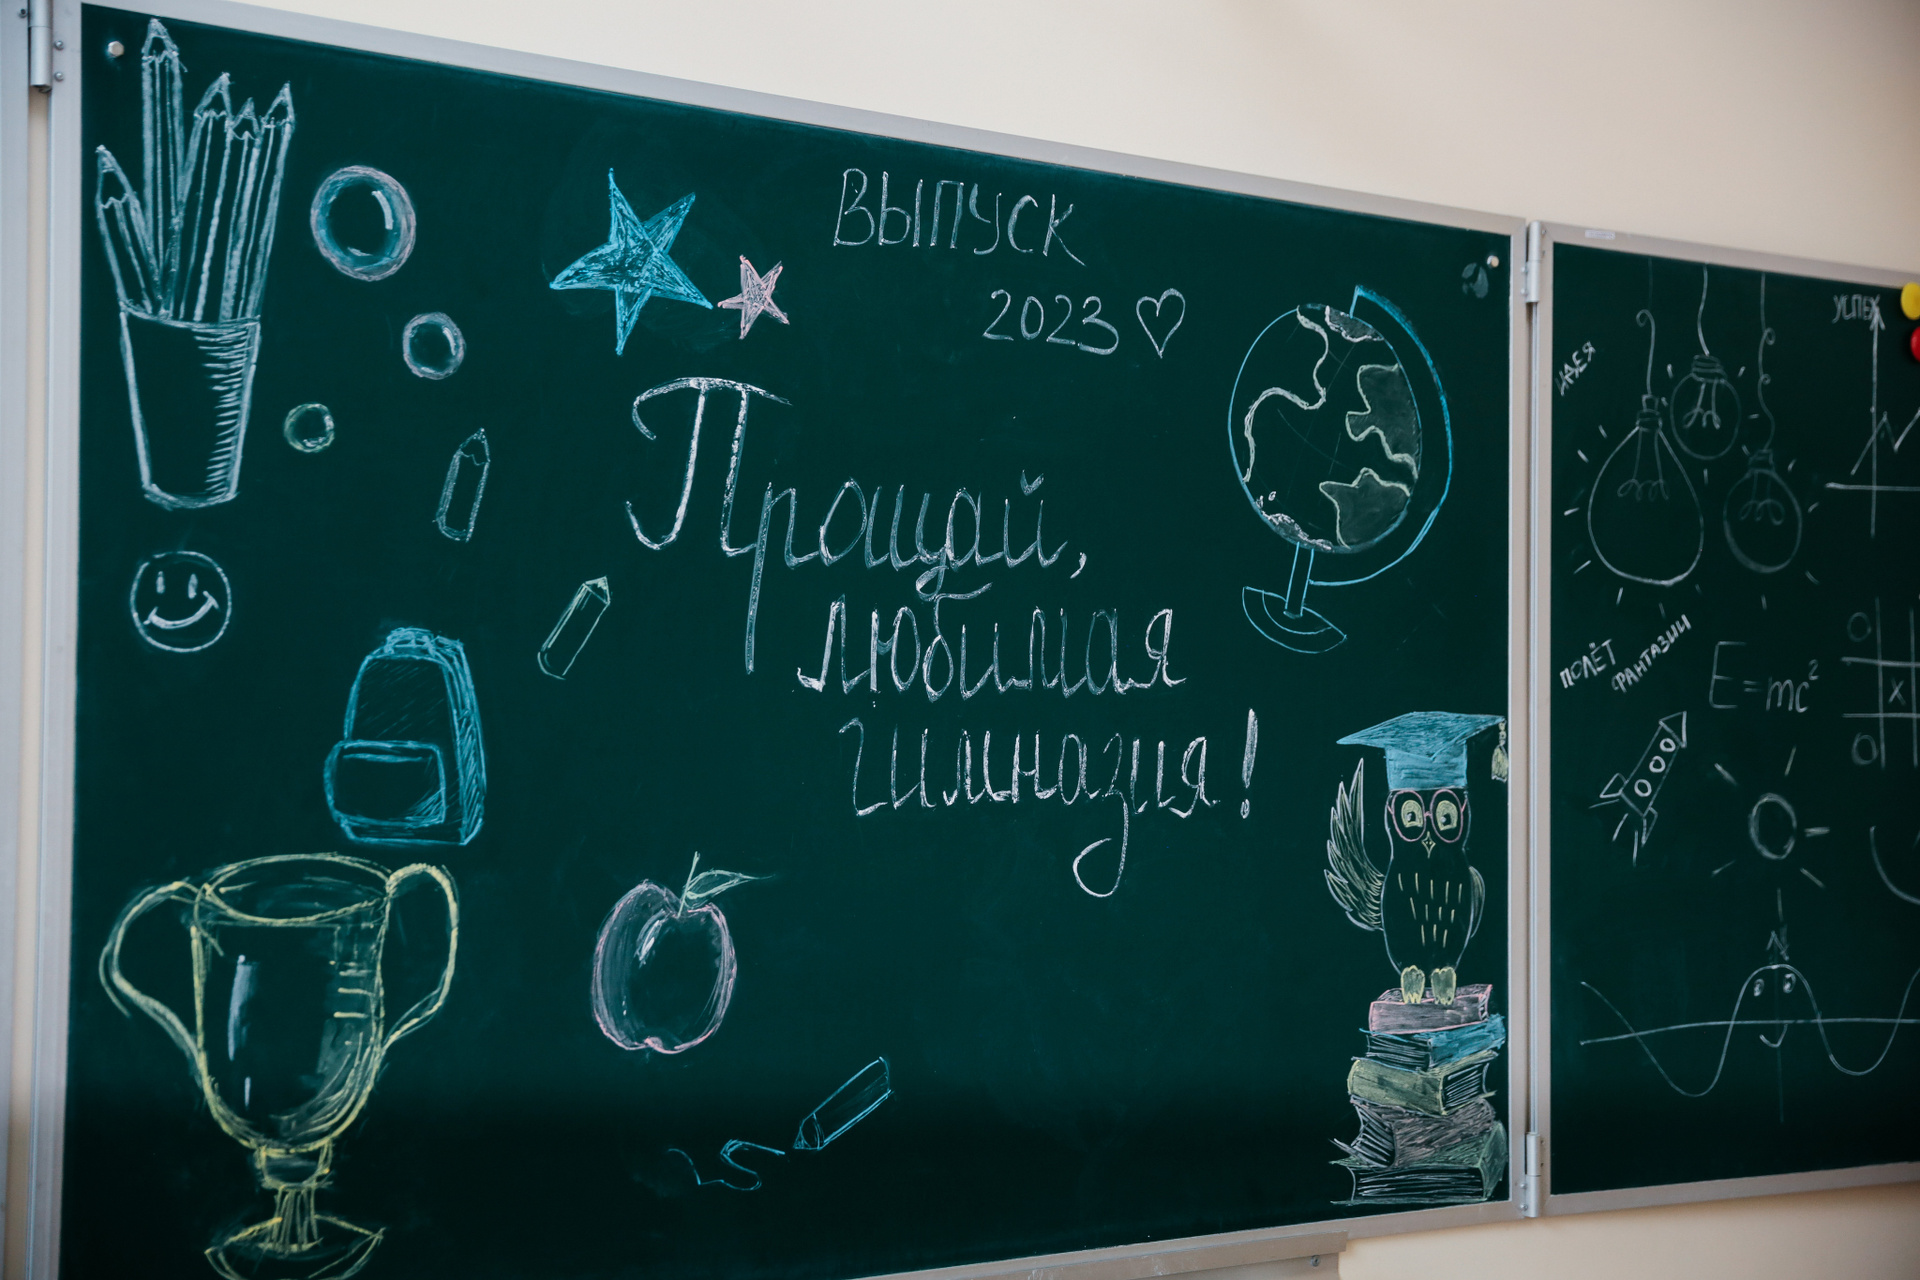 ВЫПУСК
2023
Прощай,
любимая
гимназия!
ИДЕЯ
УСПЕХ
ПОЛЁТ
ФАНТАЗИИ
E=mc²
O
X
O